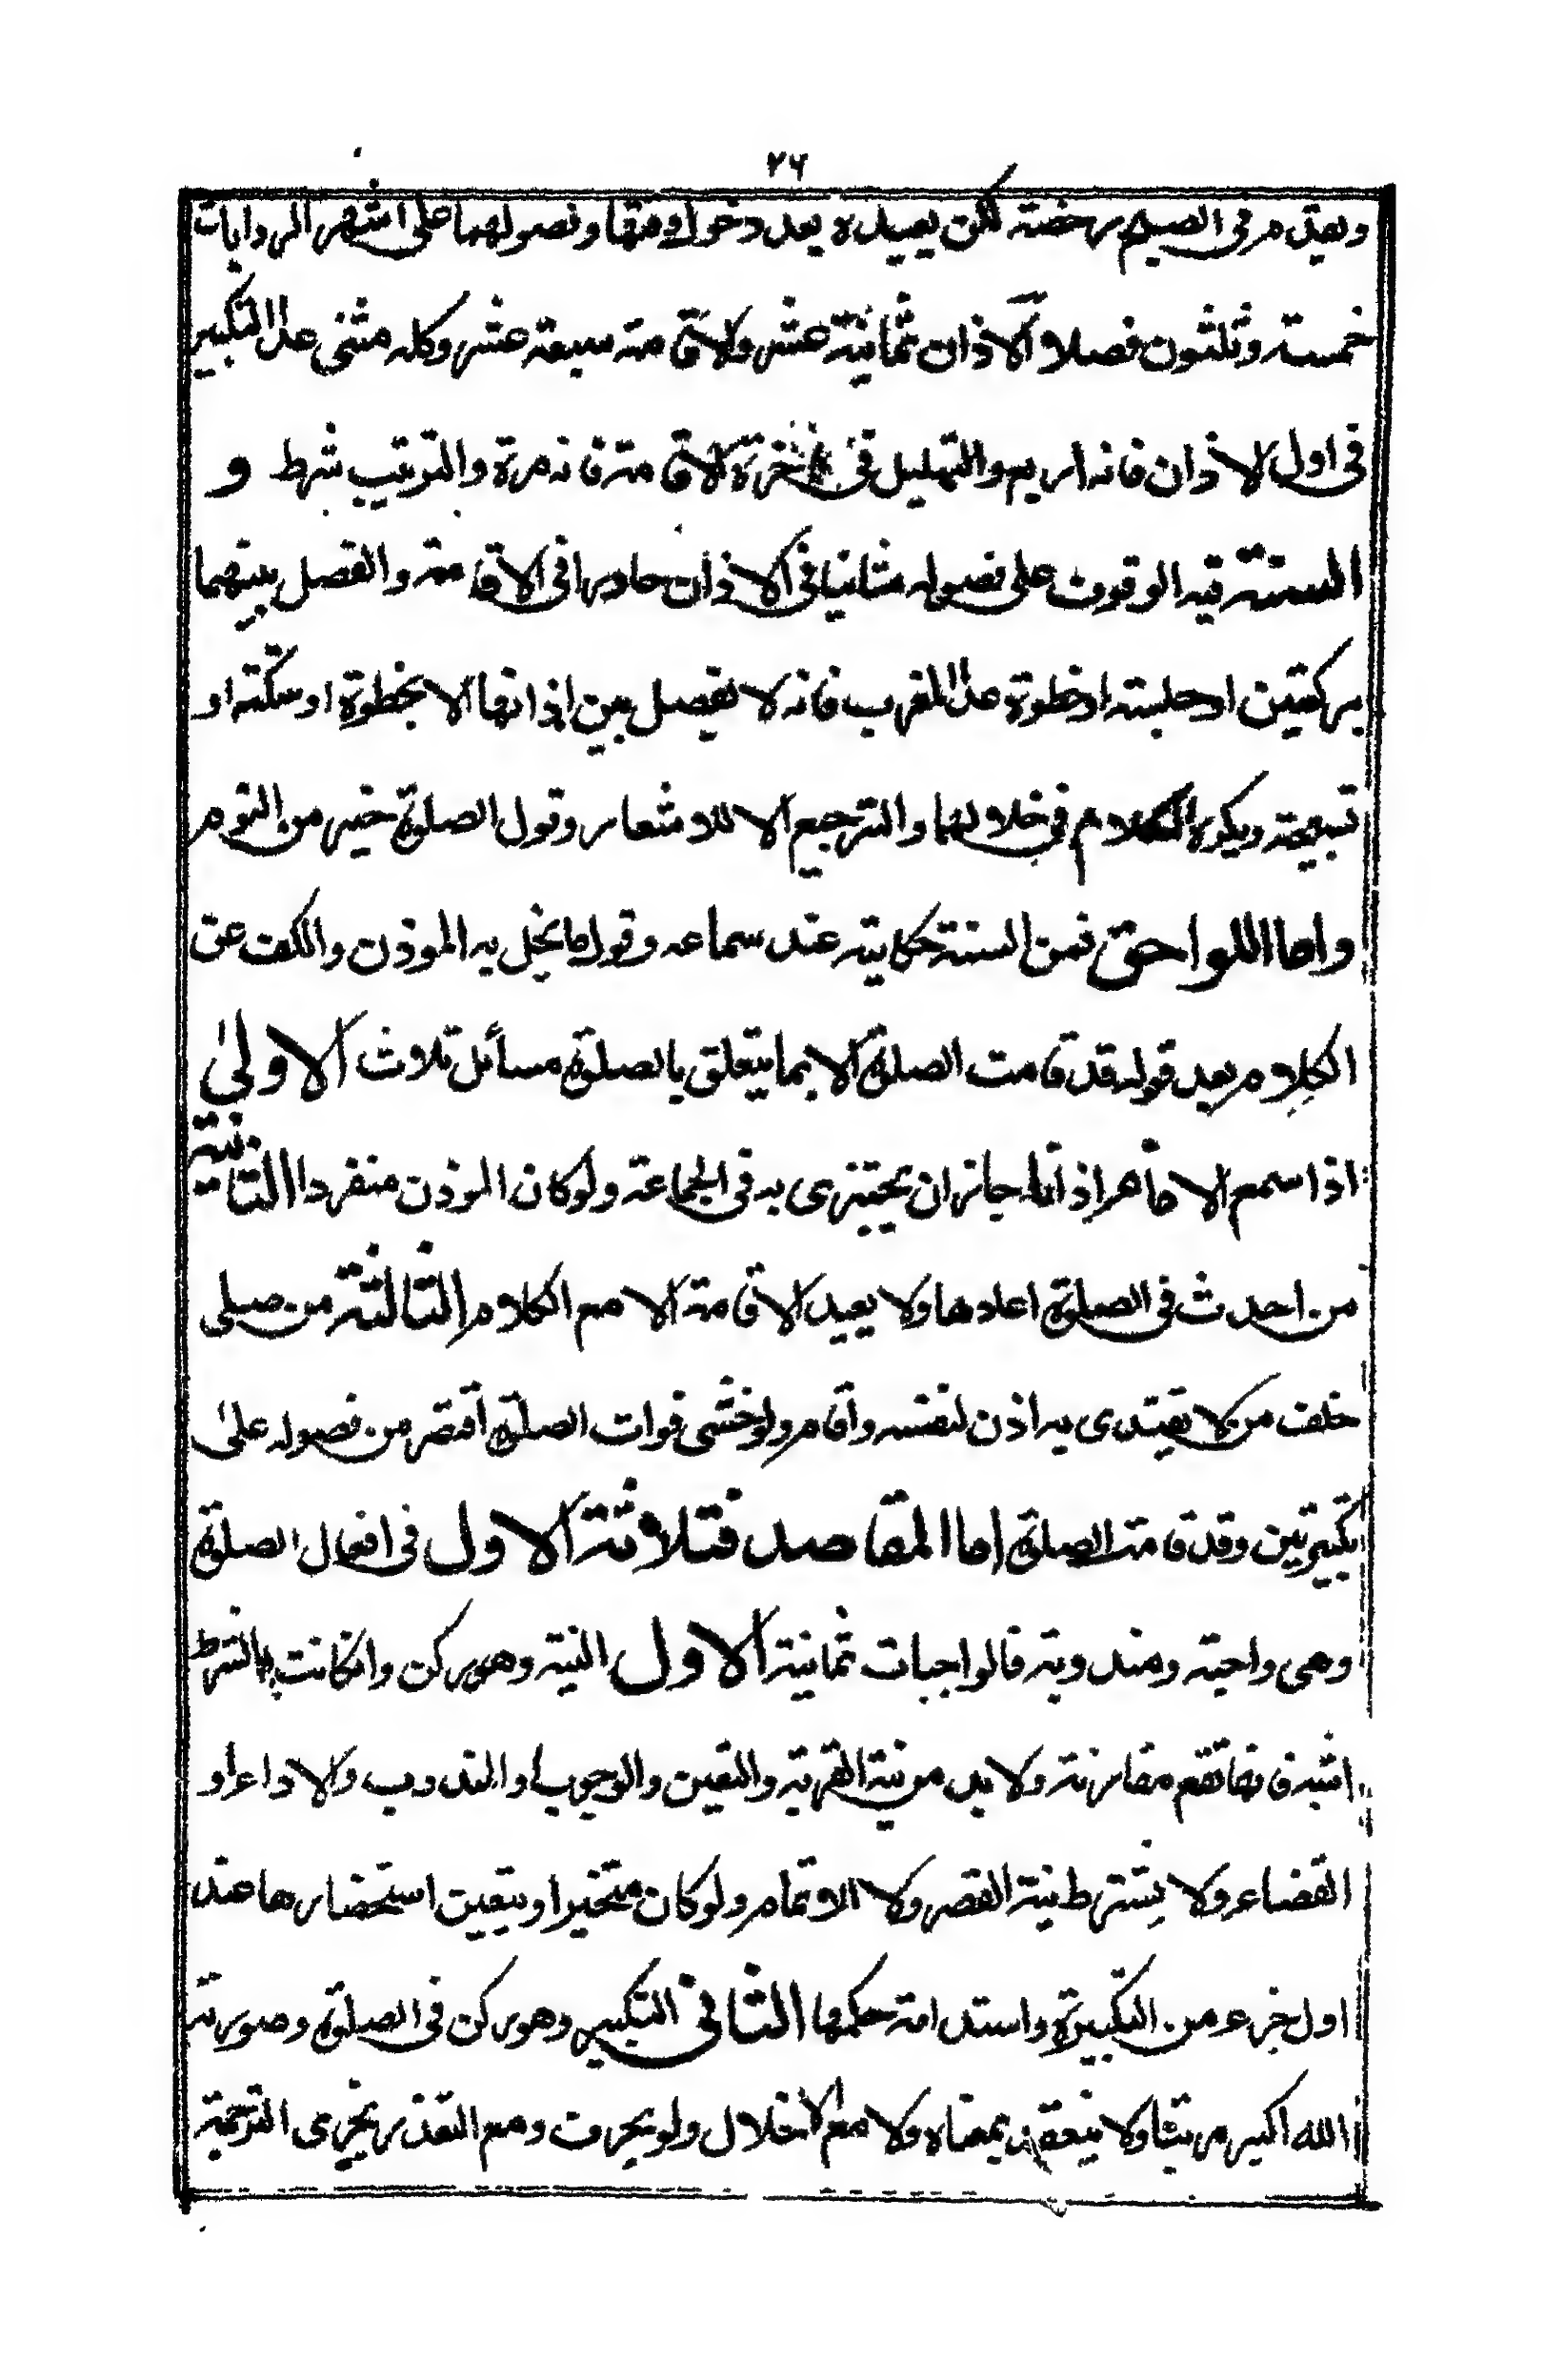 ٢٦
ويقدم في الصبح رخصة لكن يعيده بعد دخول وقتها وفصولهما على اشهر الروايات
خمسة وثلثون فصلا الاذان ثمانية عشر والاقامة سبعة عشر وكله مثنى عدا التكبير
في اول الاذان فانه اربع والتهليل في اخرة الاقامة فانه مرة والترتيب شرط و
السنة فيه الوقوف على فصوله متانيا في الاذان حادرا في الاقامة والفصل بينهما
بركعتين او جلسة او خطوة عدا المغرب فانه لا يفصل بين اذانها الا بخطوة او سكتة او
تسبيحة ويكره الكلام في خلالهما والترجيع الا للاشعار وقول الصلوة خير من النوم
واما اللواحق فمن السنة حكايته عند سماعه وقول ما يخل به الموذن والكف عن
الكلام بعد قوله قد قامت الصلوة الا بما يتعلق بالصلوة مسائل ثلاث الاولى
اذا سمع الامام اذانا جاز ان يجتزى به في الجماعة ولو كان الموذن منفردا الثانية
من احدث في الصلوة اعادها ولا يعيد الاقامة الا مع الكلام الثالثة من صلى
خلف من لا يقتدى به اذن لنفسه واقام ولو خشى فوات الصلوة اقتصر من فصوله على
تكبيرتين وقد قامت الصلوة اما المقاصد فثلاثة الاول في افعال الصلوة
وهى واجبة ومندوبة فالواجبات ثمانية الاول النية وهو ركن وانكانت بالشرط
اشبه فانها تقع مقارنة ولا بد من نية القربة والتعين والوجوب او الندوب والاداء او
القضاء ولا يشترط نية القصر ولا الاتمام ولو كان متخيرا ويتعين استحضارها عند
اول جزء من التكبيرة واستدامة حكمها الثاني التكبير وهو ركن في الصلوة وصورته
الله اكبر مرتبا ولا ينعقد بمعناه ولا مع الاخلال ولو بحرف ومع التعذر يجزى الترجمة